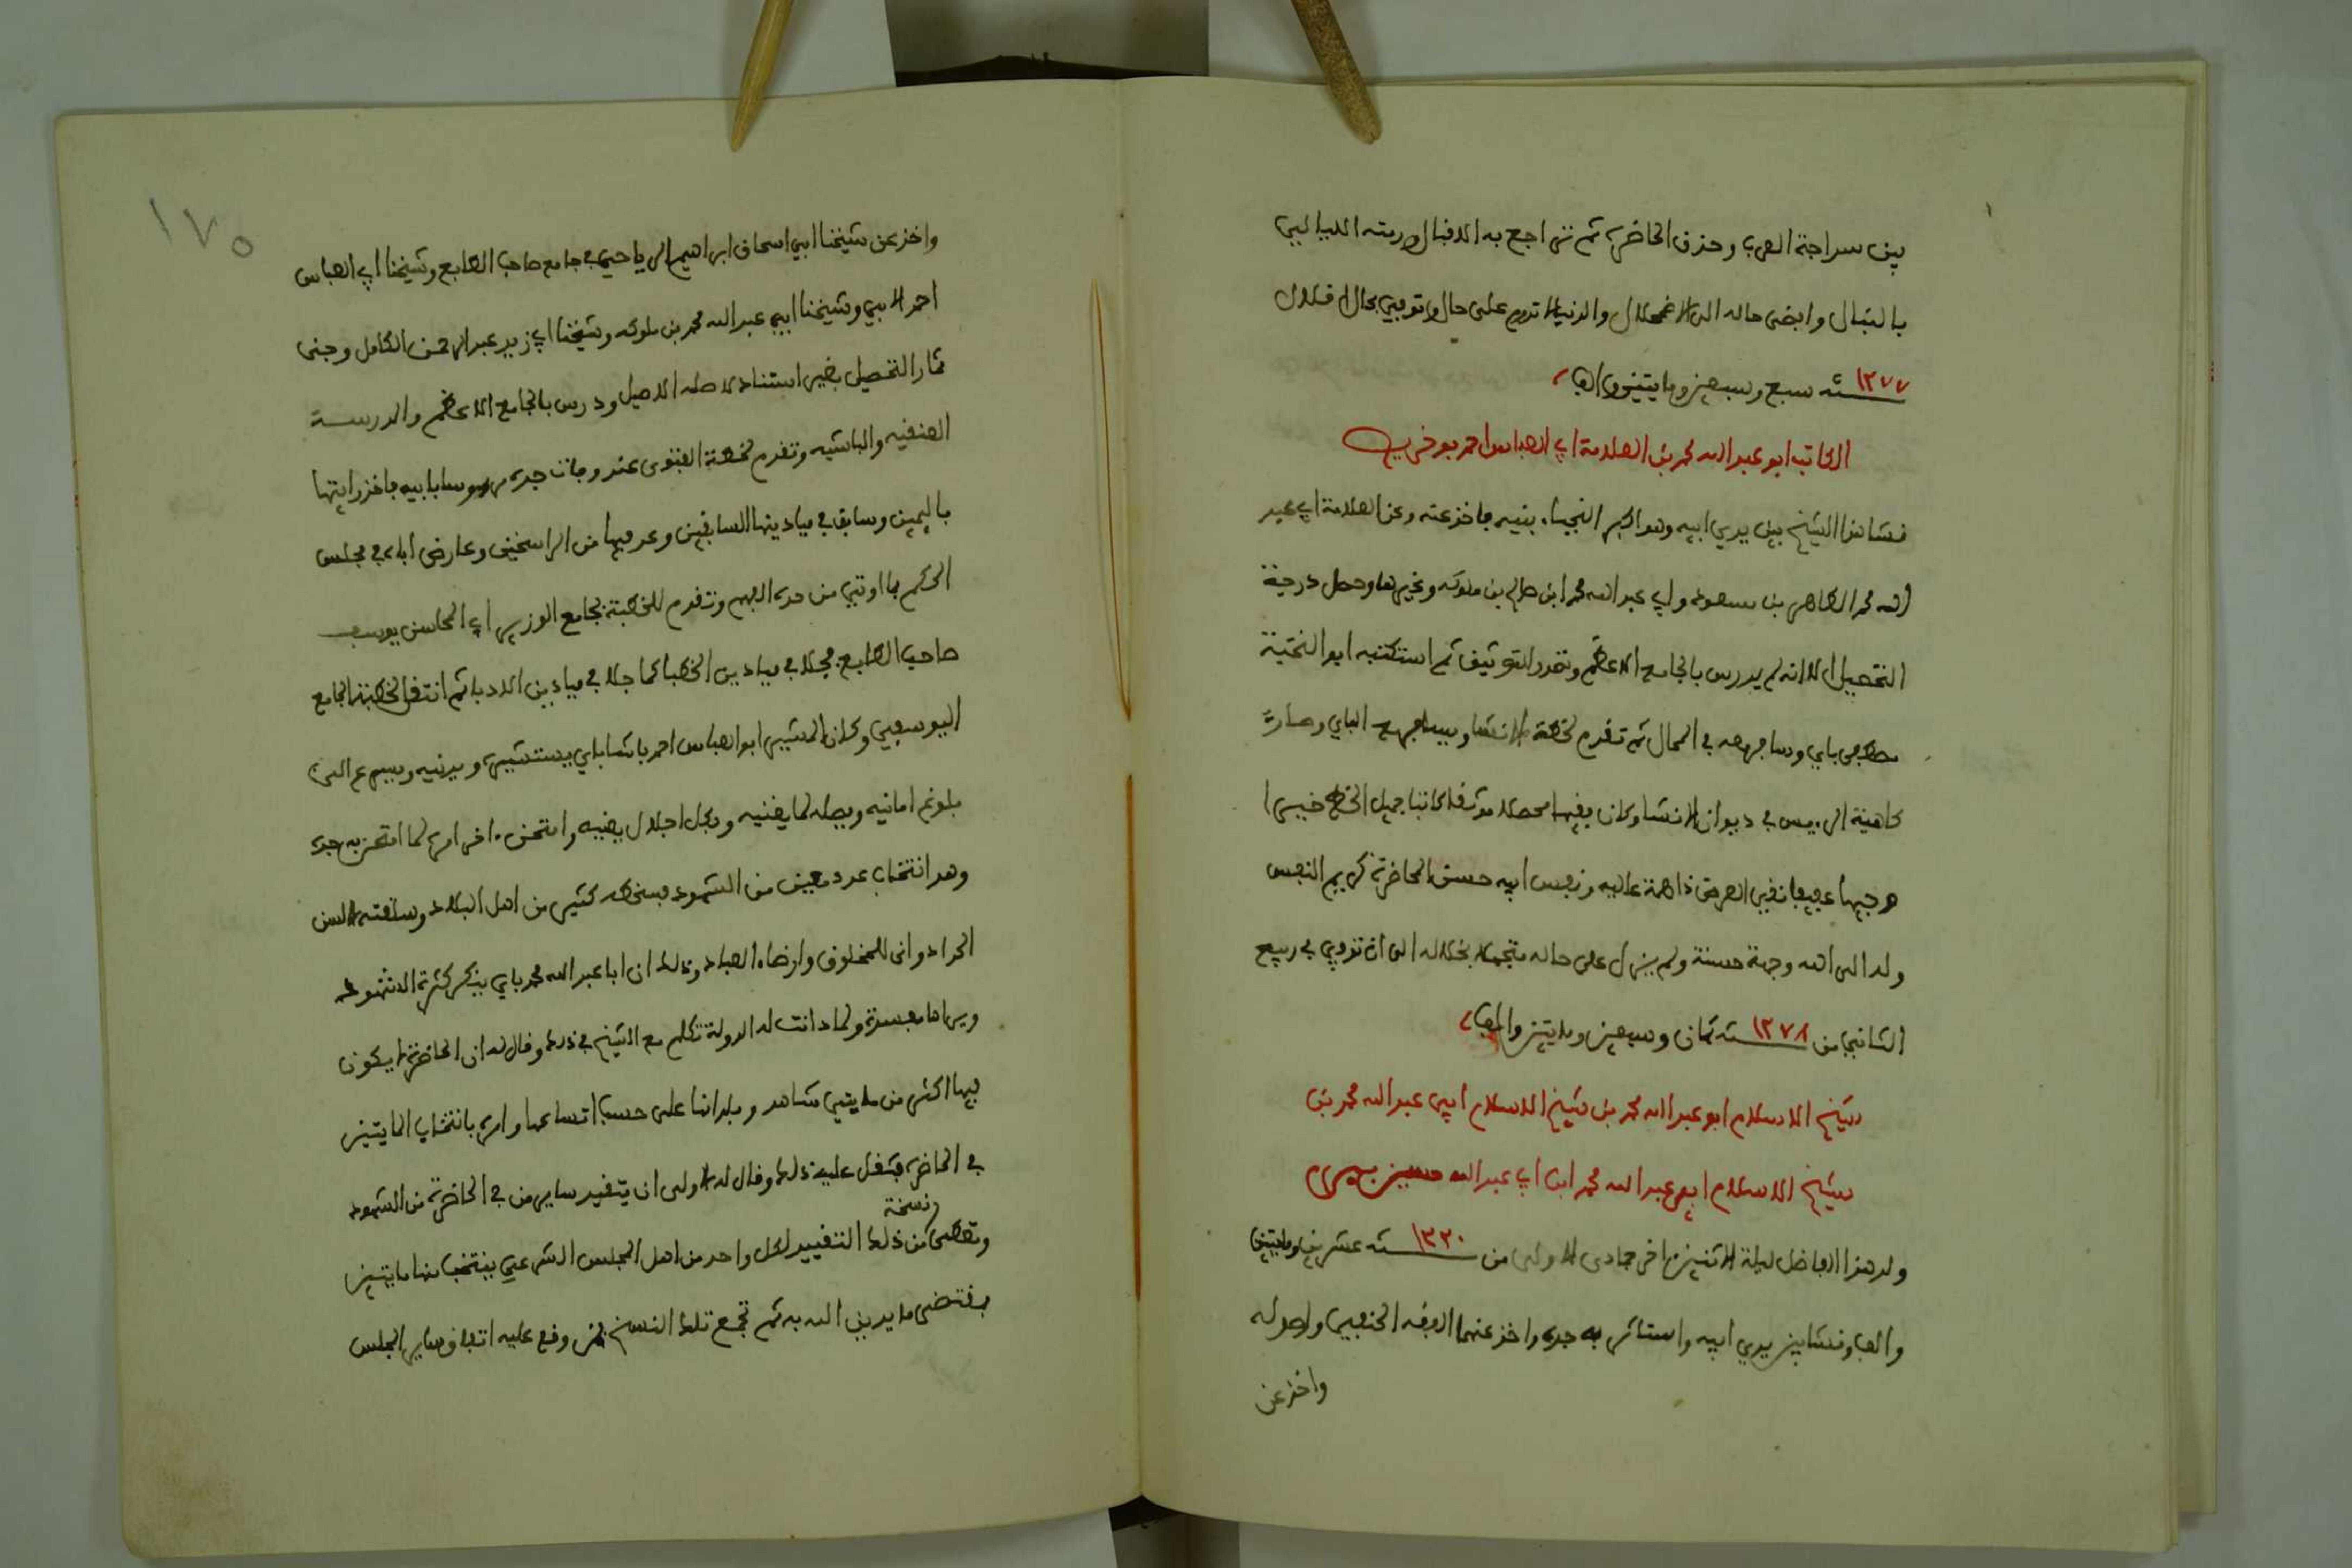 بين سراجة العرب وحذق الحاضرة ثم تراجع به الاقبال ورمته الليالي
بالنبال وافضى حاله الى الاضمحلال والدنيا لا تدوم على حال وتوفي بحال اقلال
١٢٧٧ سنة سبع وسبعين ومايتين والف
الكاتب ابو عبد الله محمد بن العلامة ابي العباس احمد بوخريص
نشا هذا الشيخ بين يدي ابيه وهو اكبر النجباء بنيه فاخذ عنه وعن العلامة ابي عبد
الله محمد الطاهر بن مسعود وابي عبد الله محمد ابن صالح بن ملوكه وغيرهما وحصل درجة
التحصيل الا انه لم يدرس بالجامع الاعظم وتقدم للتوثيق ثم استكتبه ابو النخبة
مصطفى باي وسافر معه في المحال ثم تقدم لخطة الانشا وسافر مع الباي وصار
كاهية الرييس في ديوان الانشا وكان فقيها محصلا موثقا كاتبا جميل الخط خيرا
وجيها عفيفا نقي العرض ذا همة عاليه ونفس ابيه حسن المحاضرة كريم النفس
وله الى الله وجهة حسنة ولم يزل على حاله متجملا بخلاله الى ان توفي في ربيع
الثاني من ١٢٧٨ سنة ثمان وسبعين ومايتين والف
شيخ الاسلام ابو عبد الله محمد بن شيخ الاسلام ابي عبد الله محمد بن
شيخ الاسلام ابي عبد الله محمد ابن ابي عبد الله حسين بيرم
ولد هذا الفاضل ليلة الاثنين اخر جمادى الاولى من ١٢٢٠ سنة عشرين ومايتين
والف ونشا بين يدي ابيه واستاثر به جده واخذ عنهما الفقه الحنفي واصوله
واخذ عن
١٧٥
واخذ عن شيخنا ابي اسحاق ابراهيم الرياحي في جامع صاحب الطابع وشيخنا ابي العباس
احمد الابي وشيخنا ابي عبد الله محمد بن ملوكه وشيخنا ابي زيد عبد الرحمن الكامل وجنى
ثمار التحصيل بغير استناد لاصله الاصيل ودرس بالجامع الاعظم والمدرسة
العنقيه والباشيه وتقدم لخطة الفتوى عند وفاة جده مرءوسا بابيه فاخذ رايتها
باليمين وسابق في ميادينها السابقين وعد فيها من الراسخين وعارض اباه في مجلس
الحكم بما اوتي من حدة الفهم وتقدم للخطبة بجامع الوزير ابي المحاسن يوسف
صاحب الطابع فجلا في ميادين الخطبا كما جلا في ميادين الادبا ثم انتقل لخطبة الجامع
اليوسفي وكان المشير ابو العباس احمد باشا باي يستشيره ويدنيه ويسرع الى
بلوغ امانيه ويصله بما يغنيه ويجل اجلال بنيه وامتحن اخر امره لما امتحن به جده
وهو انتخاب عدد معين من الشهود فسخطه كثير من اهل البلاد وسلقته السن
الحداد وانى للمخلوق وارضاء العباد وذلك ان ابا عبد الله محمد باي ينكر كثرة الشهود
ويراها مفسدة ولما دانت له الدولة تكلم مع الشيخ في ذلك وقال له ان الحاضرة لا يكون
فيها اكثر من مايتي شاهد وبلداننا على حسب اتساعها وامره بانتخاب المايتين
في الحاضرة فثقل عليه ذلك وقال له الاولى ان يتقيد ساير من في الحاضرة من الشهود
وتعطى نسخة من ذلك التقييد لكل واحد من اهل المجلس الشرعي ينتخب منها مايتين
بمقتضى ما يدين الله به ثم تجمع تلك النسخ فمن وقع عليه اتفاق ساير المجلس